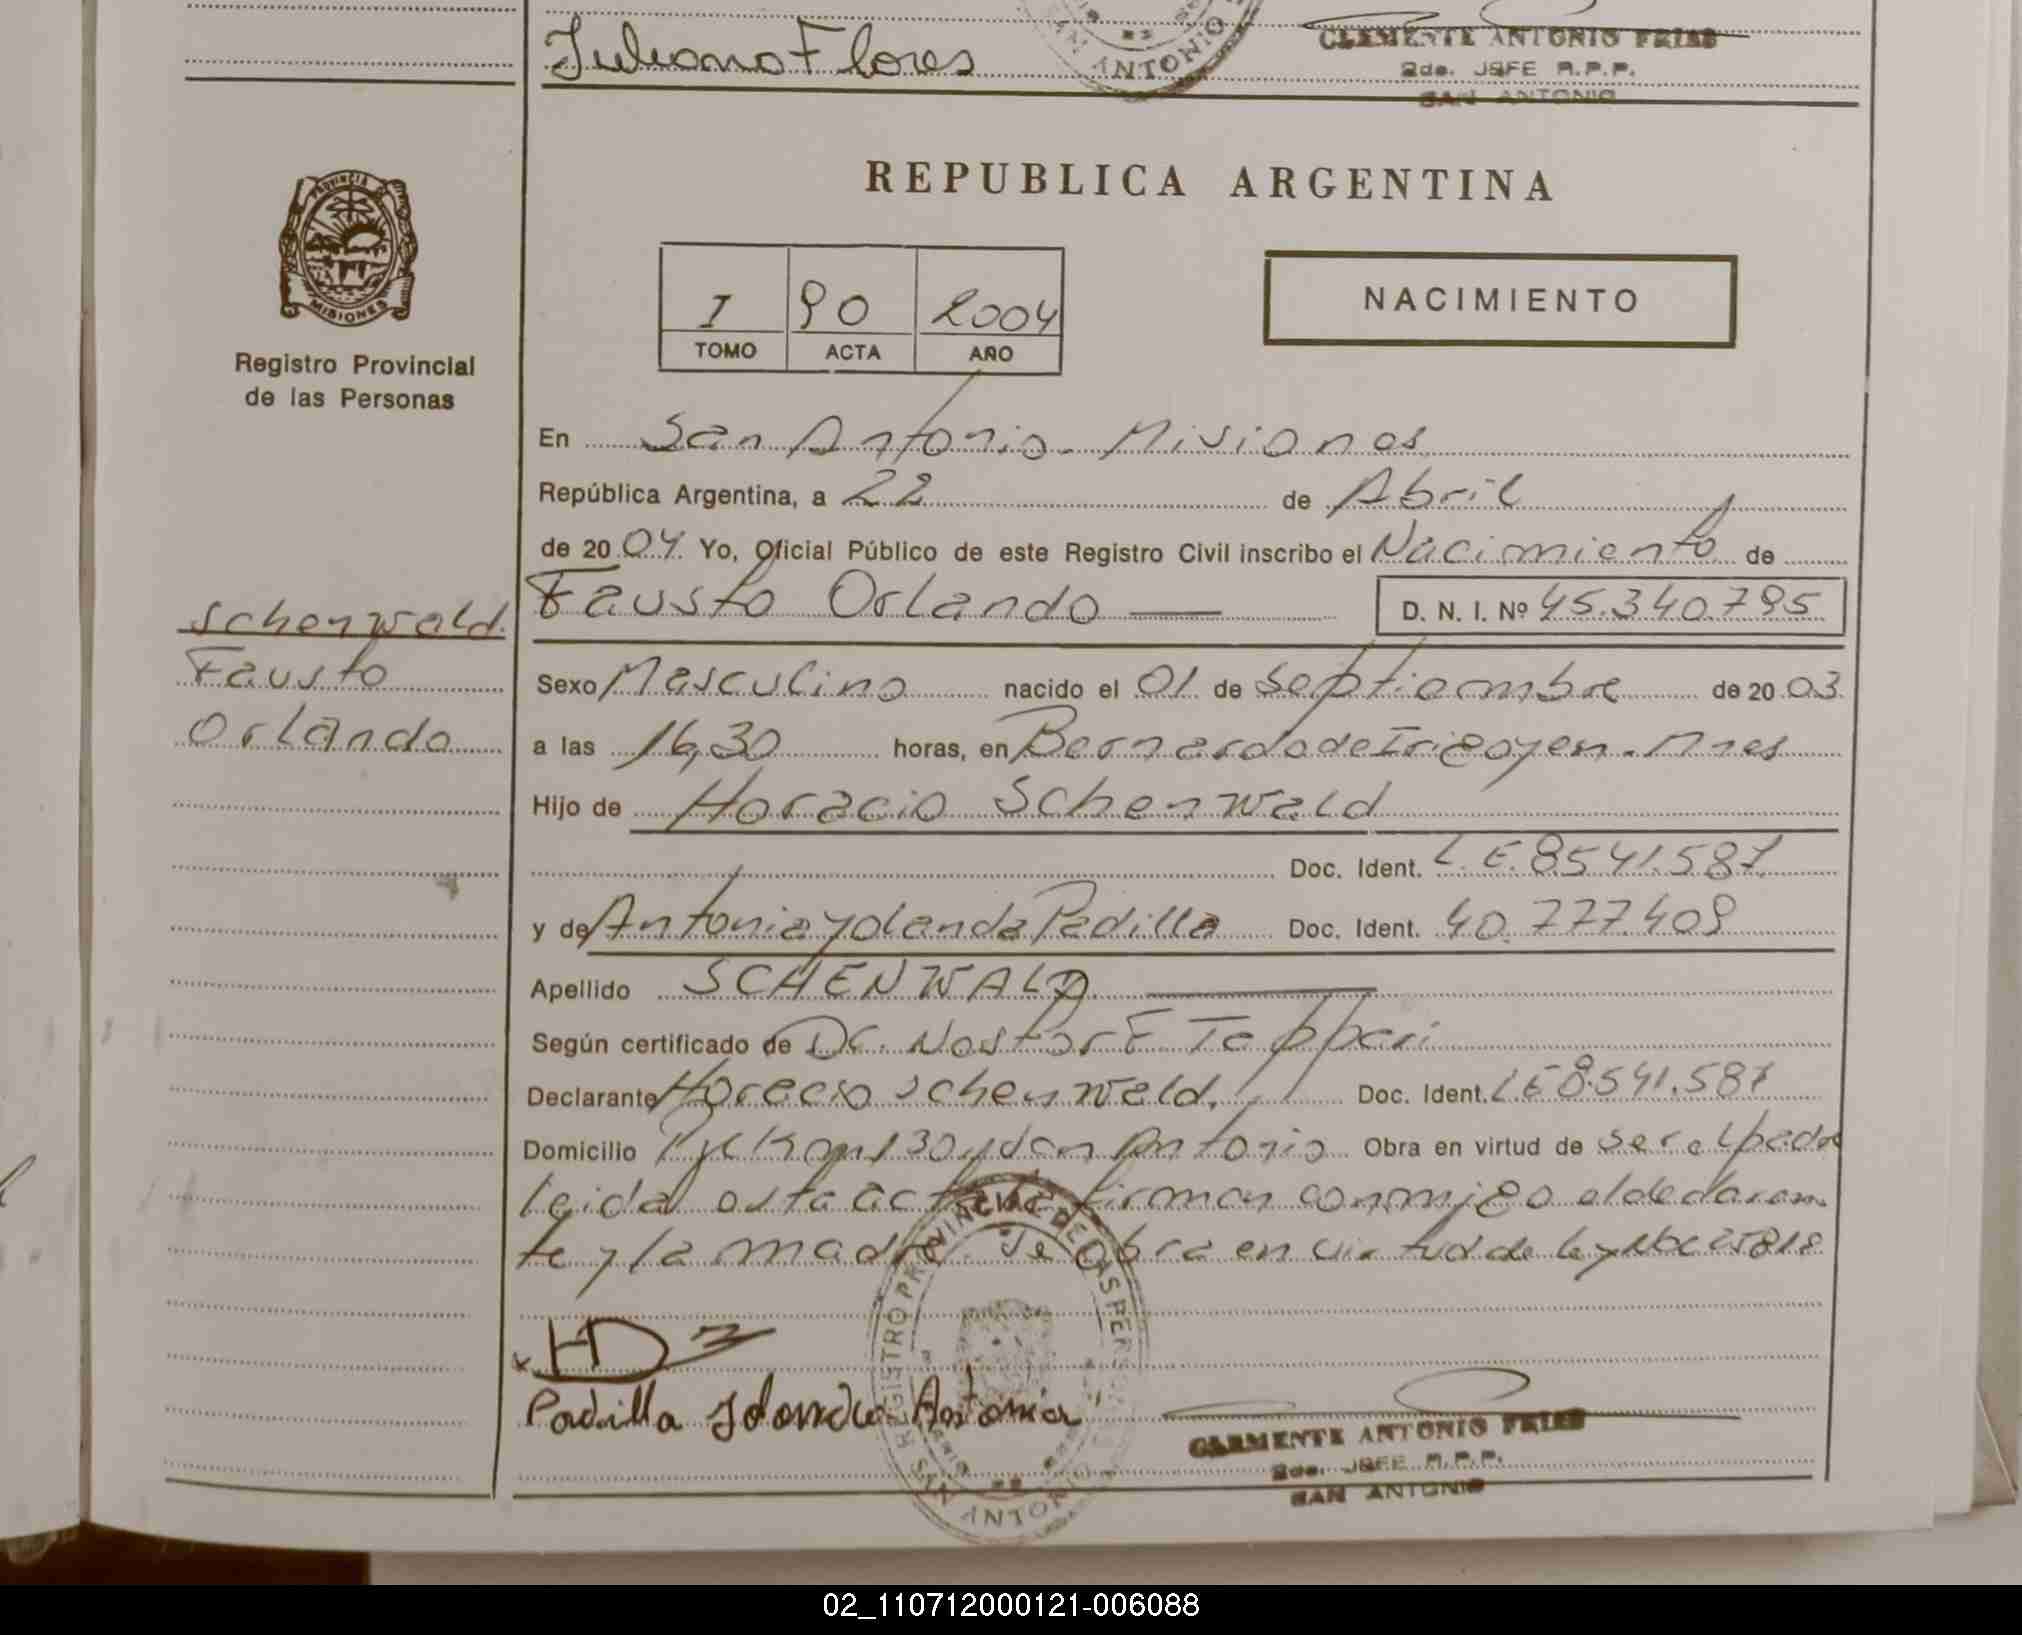 Juliano Flores
CLEMENTE ANTONIO FRIAS
2do. JEFE R.P.P.
SAN ANTONIO
REPUBLICA ARGENTINA
PROVINCIA DE
MISIONES
Registro Provincial
de las Personas
I 90 2004
TOMO ACTA AÑO
NACIMIENTO
En San Antonio - Misiones
República Argentina, a 22 de Abril
de 20 04 Yo, Oficial Público de este Registro Civil inscribo el Nacimiento de
Fausto Orlando
D. N. I. Nº 45.340.795
Schenwald.
Fausto
Orlando
Sexo Masculino nacido el 01 de Septiembre de 20 03
a las 16,30 horas, en Bernardo de Irigoyen - Mnes
Hijo de Horacio Schenwald
Doc. Ident. L.E. 8541.587
y de Antonia Yolanda Padilla Doc. Ident. 40.777.409
Apellido SCHENWALD
Según certificado de Dr. Nestor E.
Declarante Horacio Schenwald. Doc. Ident. L.E 8.541.587
Domicilio San Antonio Obra en virtud de ser el padre
leida esta acta la firman conmigo el declaran
te y la madre. Se Obra en virtud de ley 25818
Padilla Antonia
REGISTRO PROVINCIAL DE LAS PERSONAS
SAN ANTONIO
CLEMENTE ANTONIO FRIAS
2do. JEFE R.P.P.
SAN ANTONIO
02_110712000121-006088